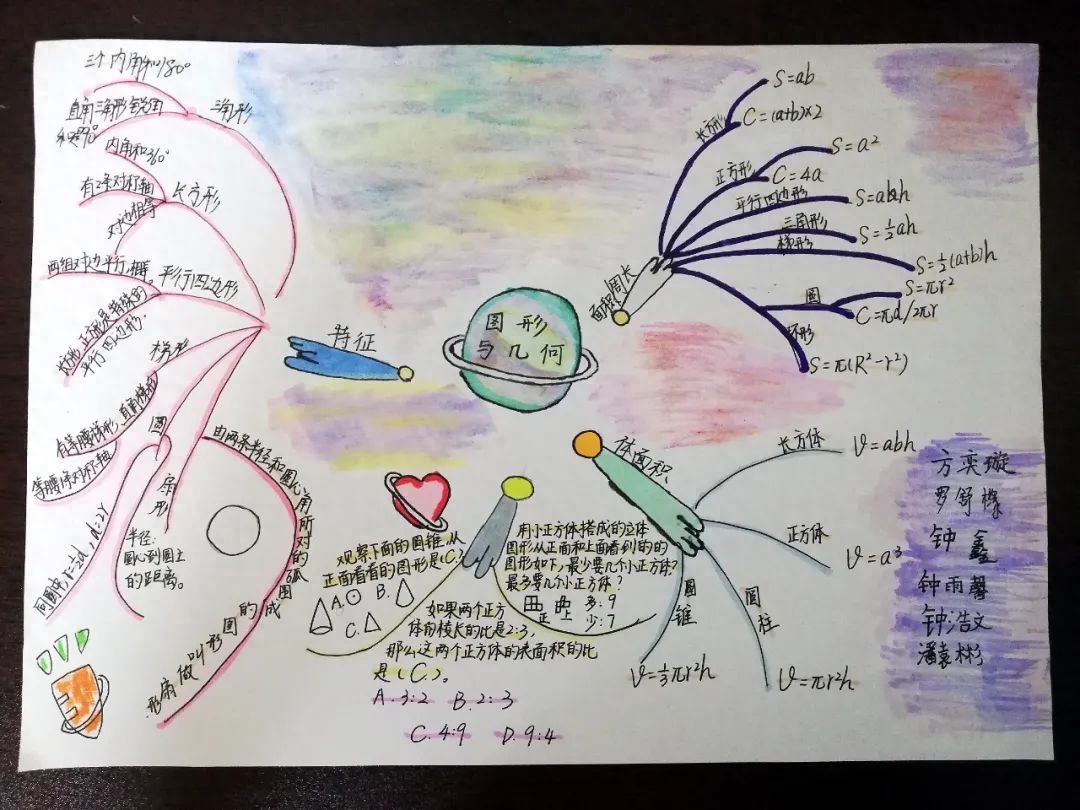 图形
与几何
特征
三角形
三个内角和180°
直角三角形锐角
和是90°
长方形
内角和360°
有2条对称轴
对边相等
平行四边形
两组对边平行,相等。
长方形、正方形是特殊的
平行四边形.
梯形
有等腰梯形、直角梯形
等腰1条对称轴
圆
同圆中,r=2d,d=2r
半径:
圆心到圆上
的距离。
扇形
由两条半径和圆心角所对的弧围成的图形叫做扇形.
面积周长
长方形
S=ab
C=(a+b)×2
正方形
S=a²
C=4a
平行四边形
S=ah
三角形
S=½ah
梯形
S=½(a+b)h
圆
S=πr²
C=πd/2πr
环形
S=π(R²-r²)
体面积
长方体
V=abh
正方体
V=a³
圆柱
V=πr²h
圆锥
V=⅓πr²h
观察下面的圆锥,从
正面看看的图形是(C)
A. B.
C.
如果两个正方
体的棱长的比是2:3,
那么这两个正方体的表面积的比
是(C)。
A.3:2 B.2:3
C.4:9 D.9:4
用小正方体搭成的立体
图形从正面和上面看到的的
图形如下,最少要几个小正方体?
最多要几个小正方体?
正 上
多:9
少:7
方奕璇
罗舒檬
钟鑫
钟雨馨
钟浩文
潘袁彬